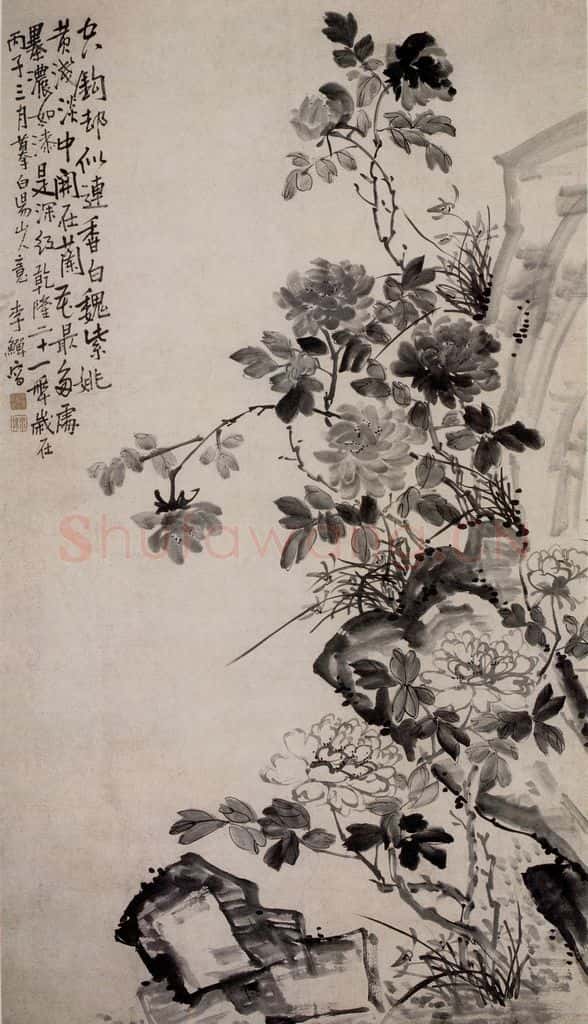 空鈎却似連香白魏紫姚
黄淺淡中開在蘭花最多處
墨濃如漆是深紅乾隆二十一年歲在
丙子三月摹白昜山人意 李鱓寫
Shufawang.CN